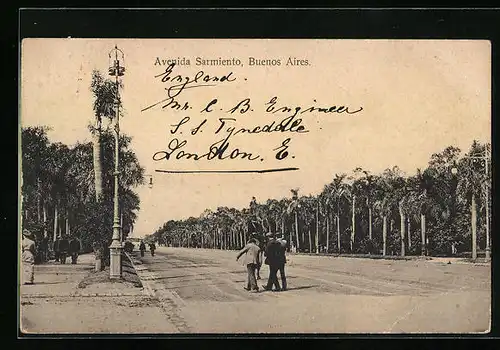 Avenida Sarmiento, Buenos Aires.
England.
Mr. C. B. Engineer
S. S. Tynedale
London. E.